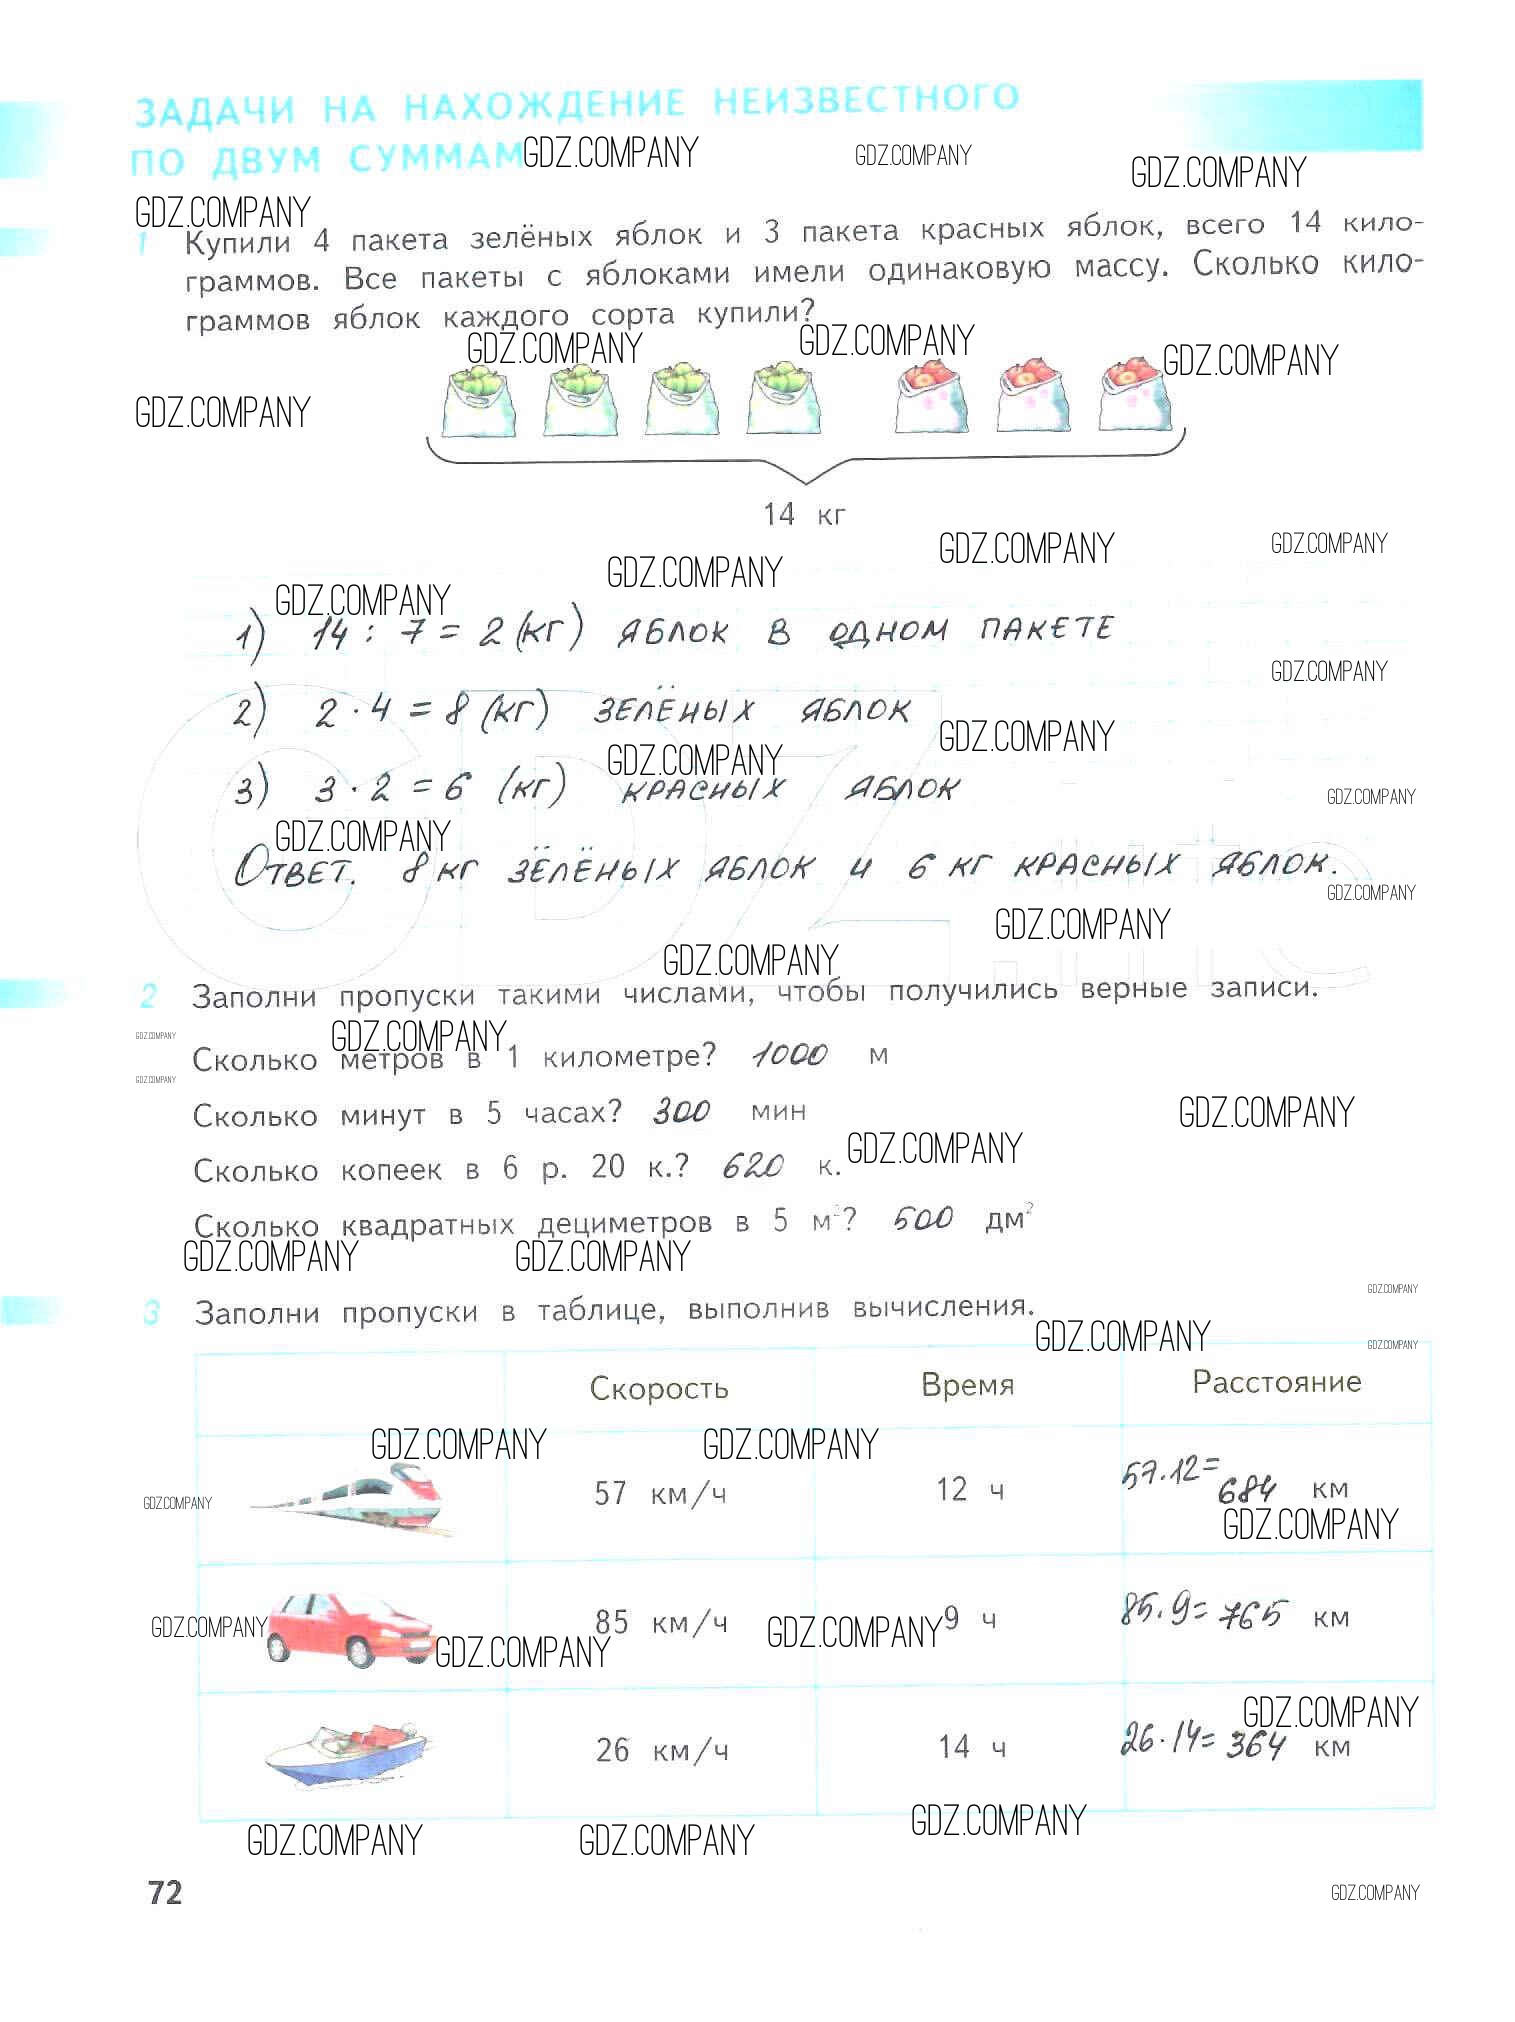 ЗАДАЧИ НА НАХОЖДЕНИЕ НЕИЗВЕСТНОГО
ПО ДВУМ СУММАМ GDZ.COMPANY GDZ.COMPANY GDZ.COMPANY
GDZ.COMPANY
1 Купили 4 пакета зелёных яблок и 3 пакета красных яблок, всего 14 кило-
граммов. Все пакеты с яблоками имели одинаковую массу. Сколько кило-
граммов яблок каждого сорта купили?
GDZ.COMPANY GDZ.COMPANY GDZ.COMPANY
GDZ.COMPANY
14 кг
GDZ.COMPANY GDZ.COMPANY GDZ.COMPANY GDZ.COMPANY
1) 14 : 7 = 2 (кг) яблок в одном пакете
GDZ.COMPANY
2) 2 · 4 = 8 (кг) зелёных яблок
GDZ.COMPANY GDZ.COMPANY
3) 3 · 2 = 6 (кг) красных яблок
GDZ.COMPANY
GDZ.COMPANY
Ответ. 8 кг зёлёных яблок и 6 кг красных яблок.
GDZ.COMPANY
GDZ.COMPANY GDZ.COMPANY
GDZ.ИТС
2 Заполни пропуски такими числами, чтобы получились верные записи.
GDZ.COMPANY GDZ.COMPANY
Сколько метров в 1 километре? 1000 м
GDZ.COMPANY
Сколько минут в 5 часах? 300 мин
GDZ.COMPANY GDZ.COMPANY
Сколько копеек в 6 р. 20 к.? 620 к.
Сколько квадратных дециметров в 5 м²? 500 дм²
GDZ.COMPANY GDZ.COMPANY
GDZ.COMPANY
3 Заполни пропуски в таблице, выполнив вычисления.
GDZ.COMPANY GDZ.COMPANY
Скорость Время Расстояние
GDZ.COMPANY GDZ.COMPANY
57 км/ч 12 ч 57·12=
684 км
GDZ.COMPANY GDZ.COMPANY
85 км/ч 9 ч 85·9= 765 км
GDZ.COMPANY GDZ.COMPANY GDZ.COMPANY
GDZ.COMPANY
26 км/ч 14 ч 26·14= 364 км
GDZ.COMPANY GDZ.COMPANY GDZ.COMPANY
72 GDZ.COMPANY